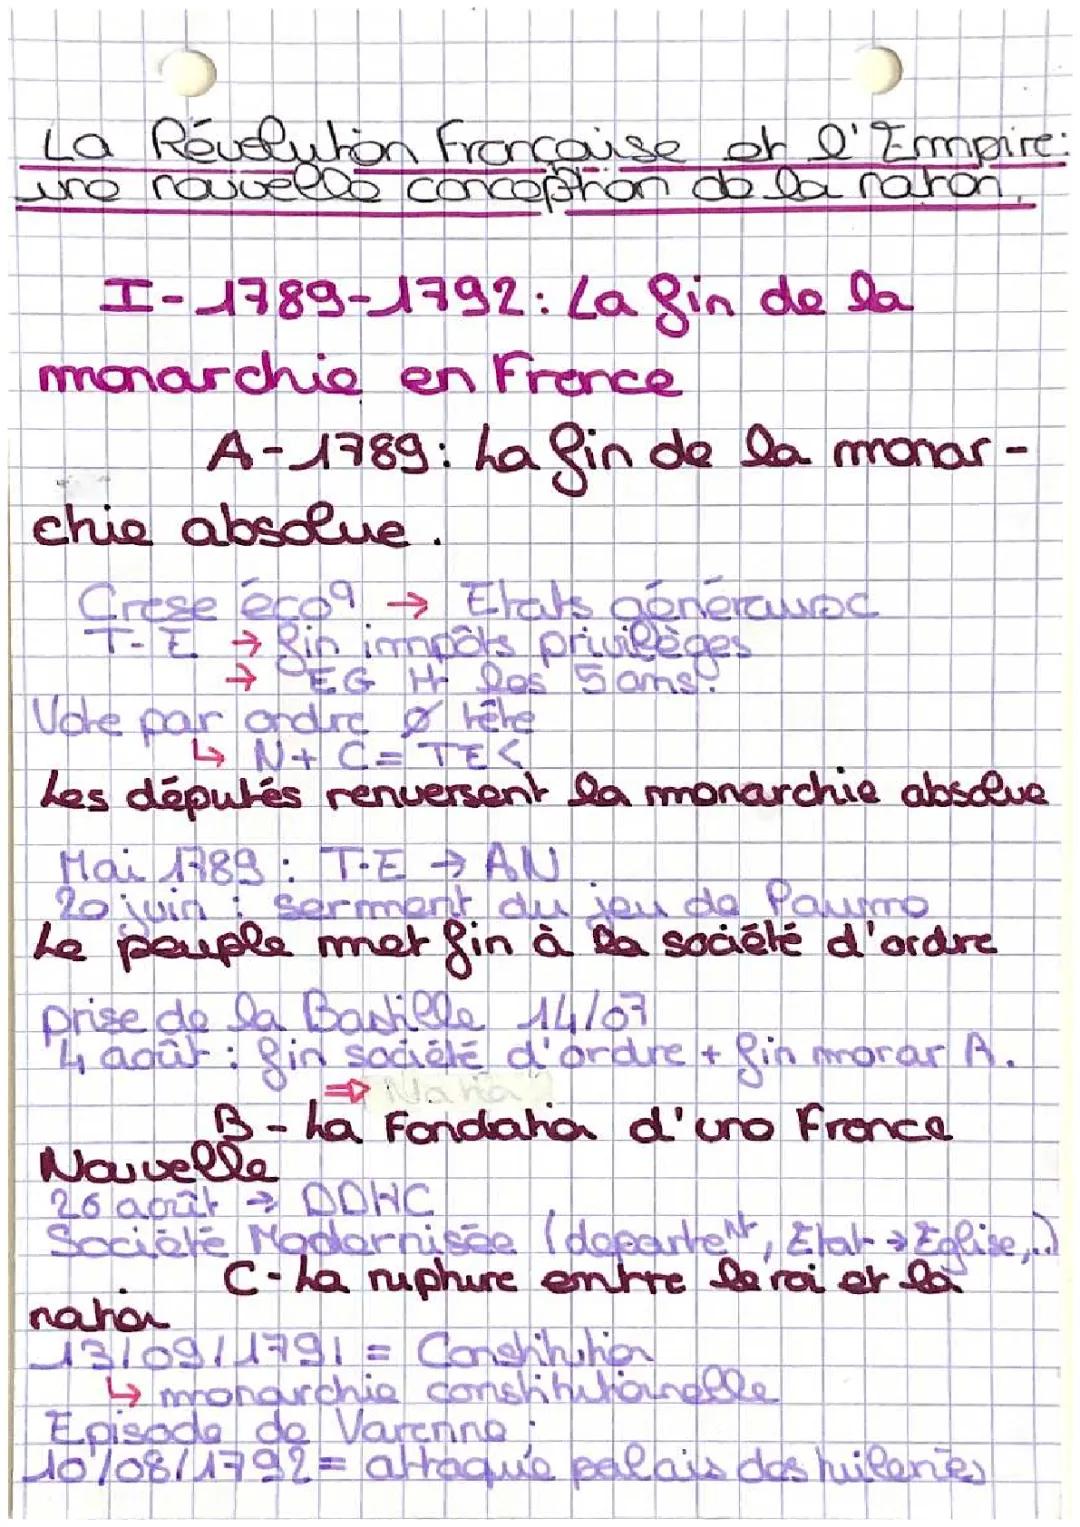 La Révolution Française et l'Empire:
une nouvelle conception de la nation.
I-1789-1792: La fin de la
monarchie en France
A-1789: La fin de la monar-
chie absolue.
Crise éco° → Etats généraux
T-E → fin impôts privilèges
→ EG tt les 5 ans.
Vote par ordre ø tête
↳ N+ C= TE<
Les députés renversent la monarchie absolue
Mai 1789 : T-E → AN
20 juin : serment du jeu de Paume
Le peuple met fin à la société d'ordre
prise de la Bastille 14/07
4 août : fin société d'ordre + fin monar A.
⇒ Nation
B-La Fondation d'une France
Nouvelle
26 août → DDHC
Société Modernisée (departeNt, Etat → Eglise,..)
C-La rupture entre le roi et la
nation
13/09/1791 = Constitution
↳ monarchie constitutionnelle
Episode de Varenne :
10/08/1792= attaque palais des tuileries